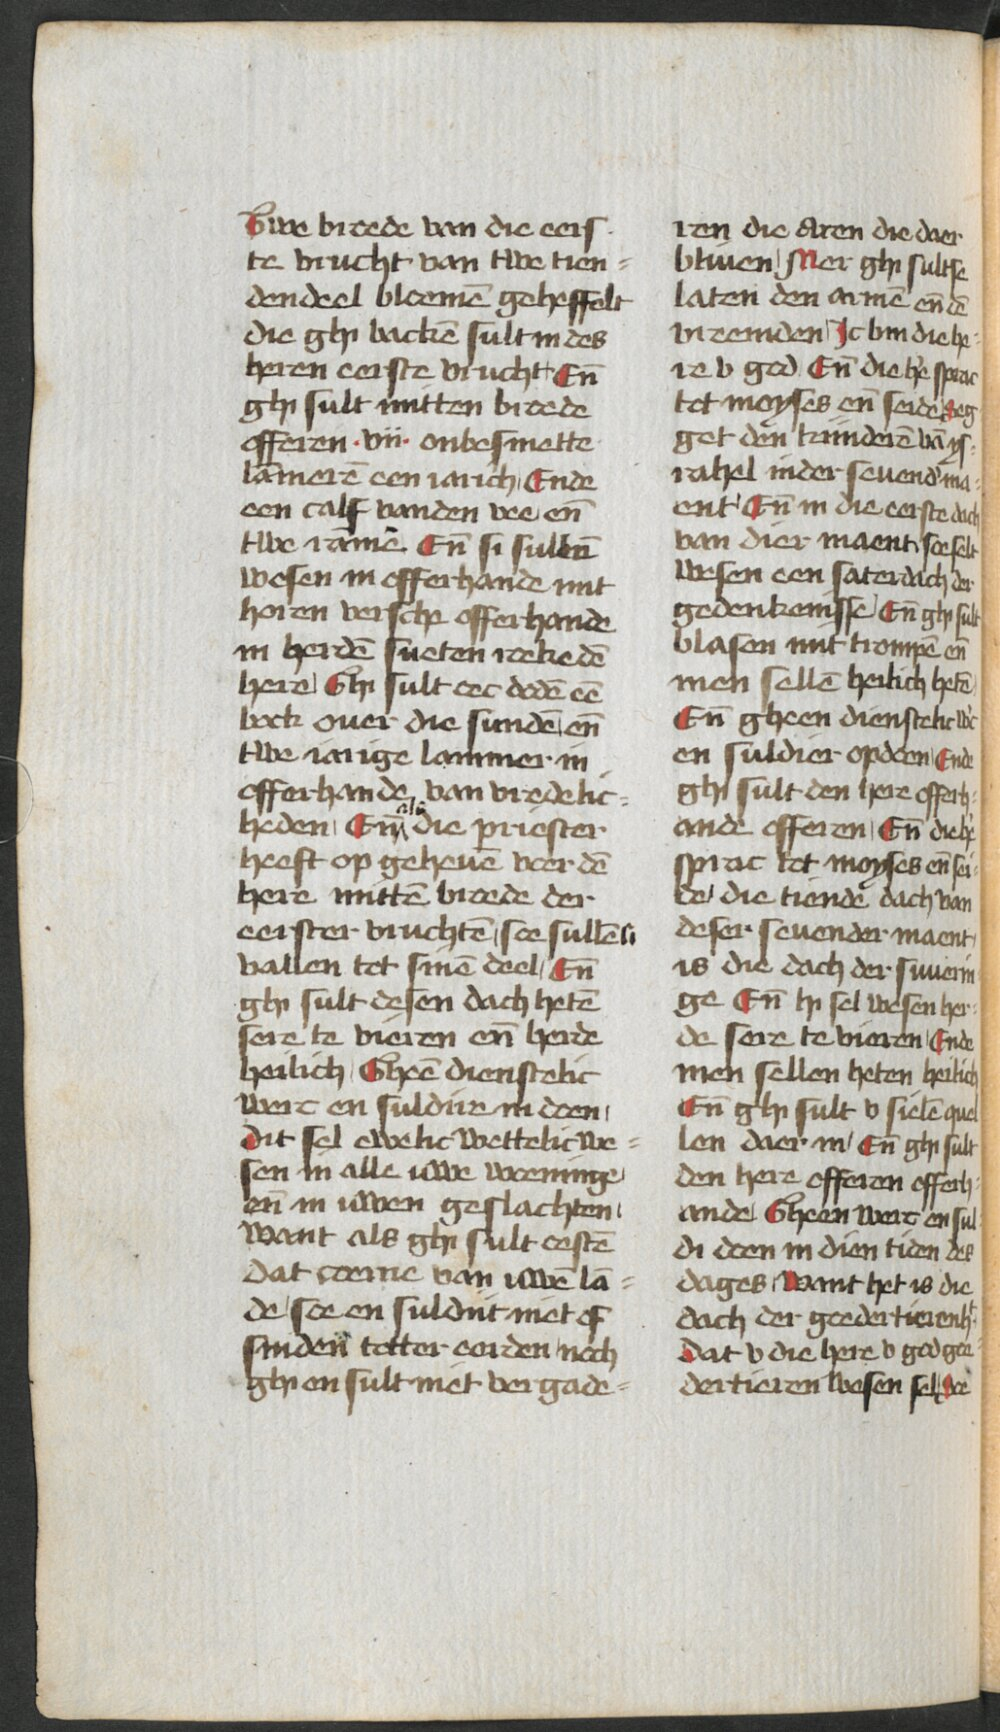 Twe broede van die eers
te vrucht van twe tien=
dendeel bloemē geheffelt
die ghi backē sult in des
heren eerste vrucht Eñ
ghi sult mitten broede
offeren ·vii· onbesmette
lāmerē een iarich Ende
een calf vanden vee eñ
twe rāme. Eñ si sullen
wesen in offerhande mit
horen versche offerhande
in herdē sueten roke dē
here Ghi sult oec doedē eē
bock ouer die sundē eñ
twe iarige lammer in
offerhande van vredelic=
heden Eñ als die priester
heeft op geheuē voer dē
here mittē broede der
eerster vruchtē soe sullē si
vallen tot sinē deel Eñ
ghi sult desen dach hetē
sere te vieren eñ herde
heilich Gheē dienstelic
werc en suldire in doen
dit sel ewelic wettelic we=
sen in alle uwe woeninge
eñ in uwen geslachten
want als ghi sult oestē
dat coerne van uwē lā=
de soe en suldijt niet of
sniden totter eorden noch
ghi en sult niet vergade=
ren die aren die daer
bliuen Mer ghi sultse
laten den armē eñ dē
vreemden Jc bin die he=
re v god Eñ die hē sprac
tot moyses eñ seide seg
get den kinderē vā ys=
rahel inder seuend' ma=
ent Eñ in die eerste dach
van dier maent soe selt
wesen een saterdach der
gedenkenisse Eñ ghi sult
blasen mit trompē eñ
men sellē heilich hetē
Eñ gheen dienstelic w'c
en suldier opdoen Ende
ghi sult den here offerh=
ande offeren Eñ die hē
sprac tot moyses eñ sei=
de die tiende dach van
deser seuender maent
is die dach der suuerin
ge Eñ hi sel wesen her=
de sere te vieren Ende
men sellen heten heilich
Eñ ghi sult v sielē quel
len daer in Eñ ghi sult
den here offeren offerh=
ande Gheen werc en sul
di doen in dien tiden des
dages Want het is die
dach der goedertierenh't
Dat v die here v god goe=
dertieren wesen sel soe